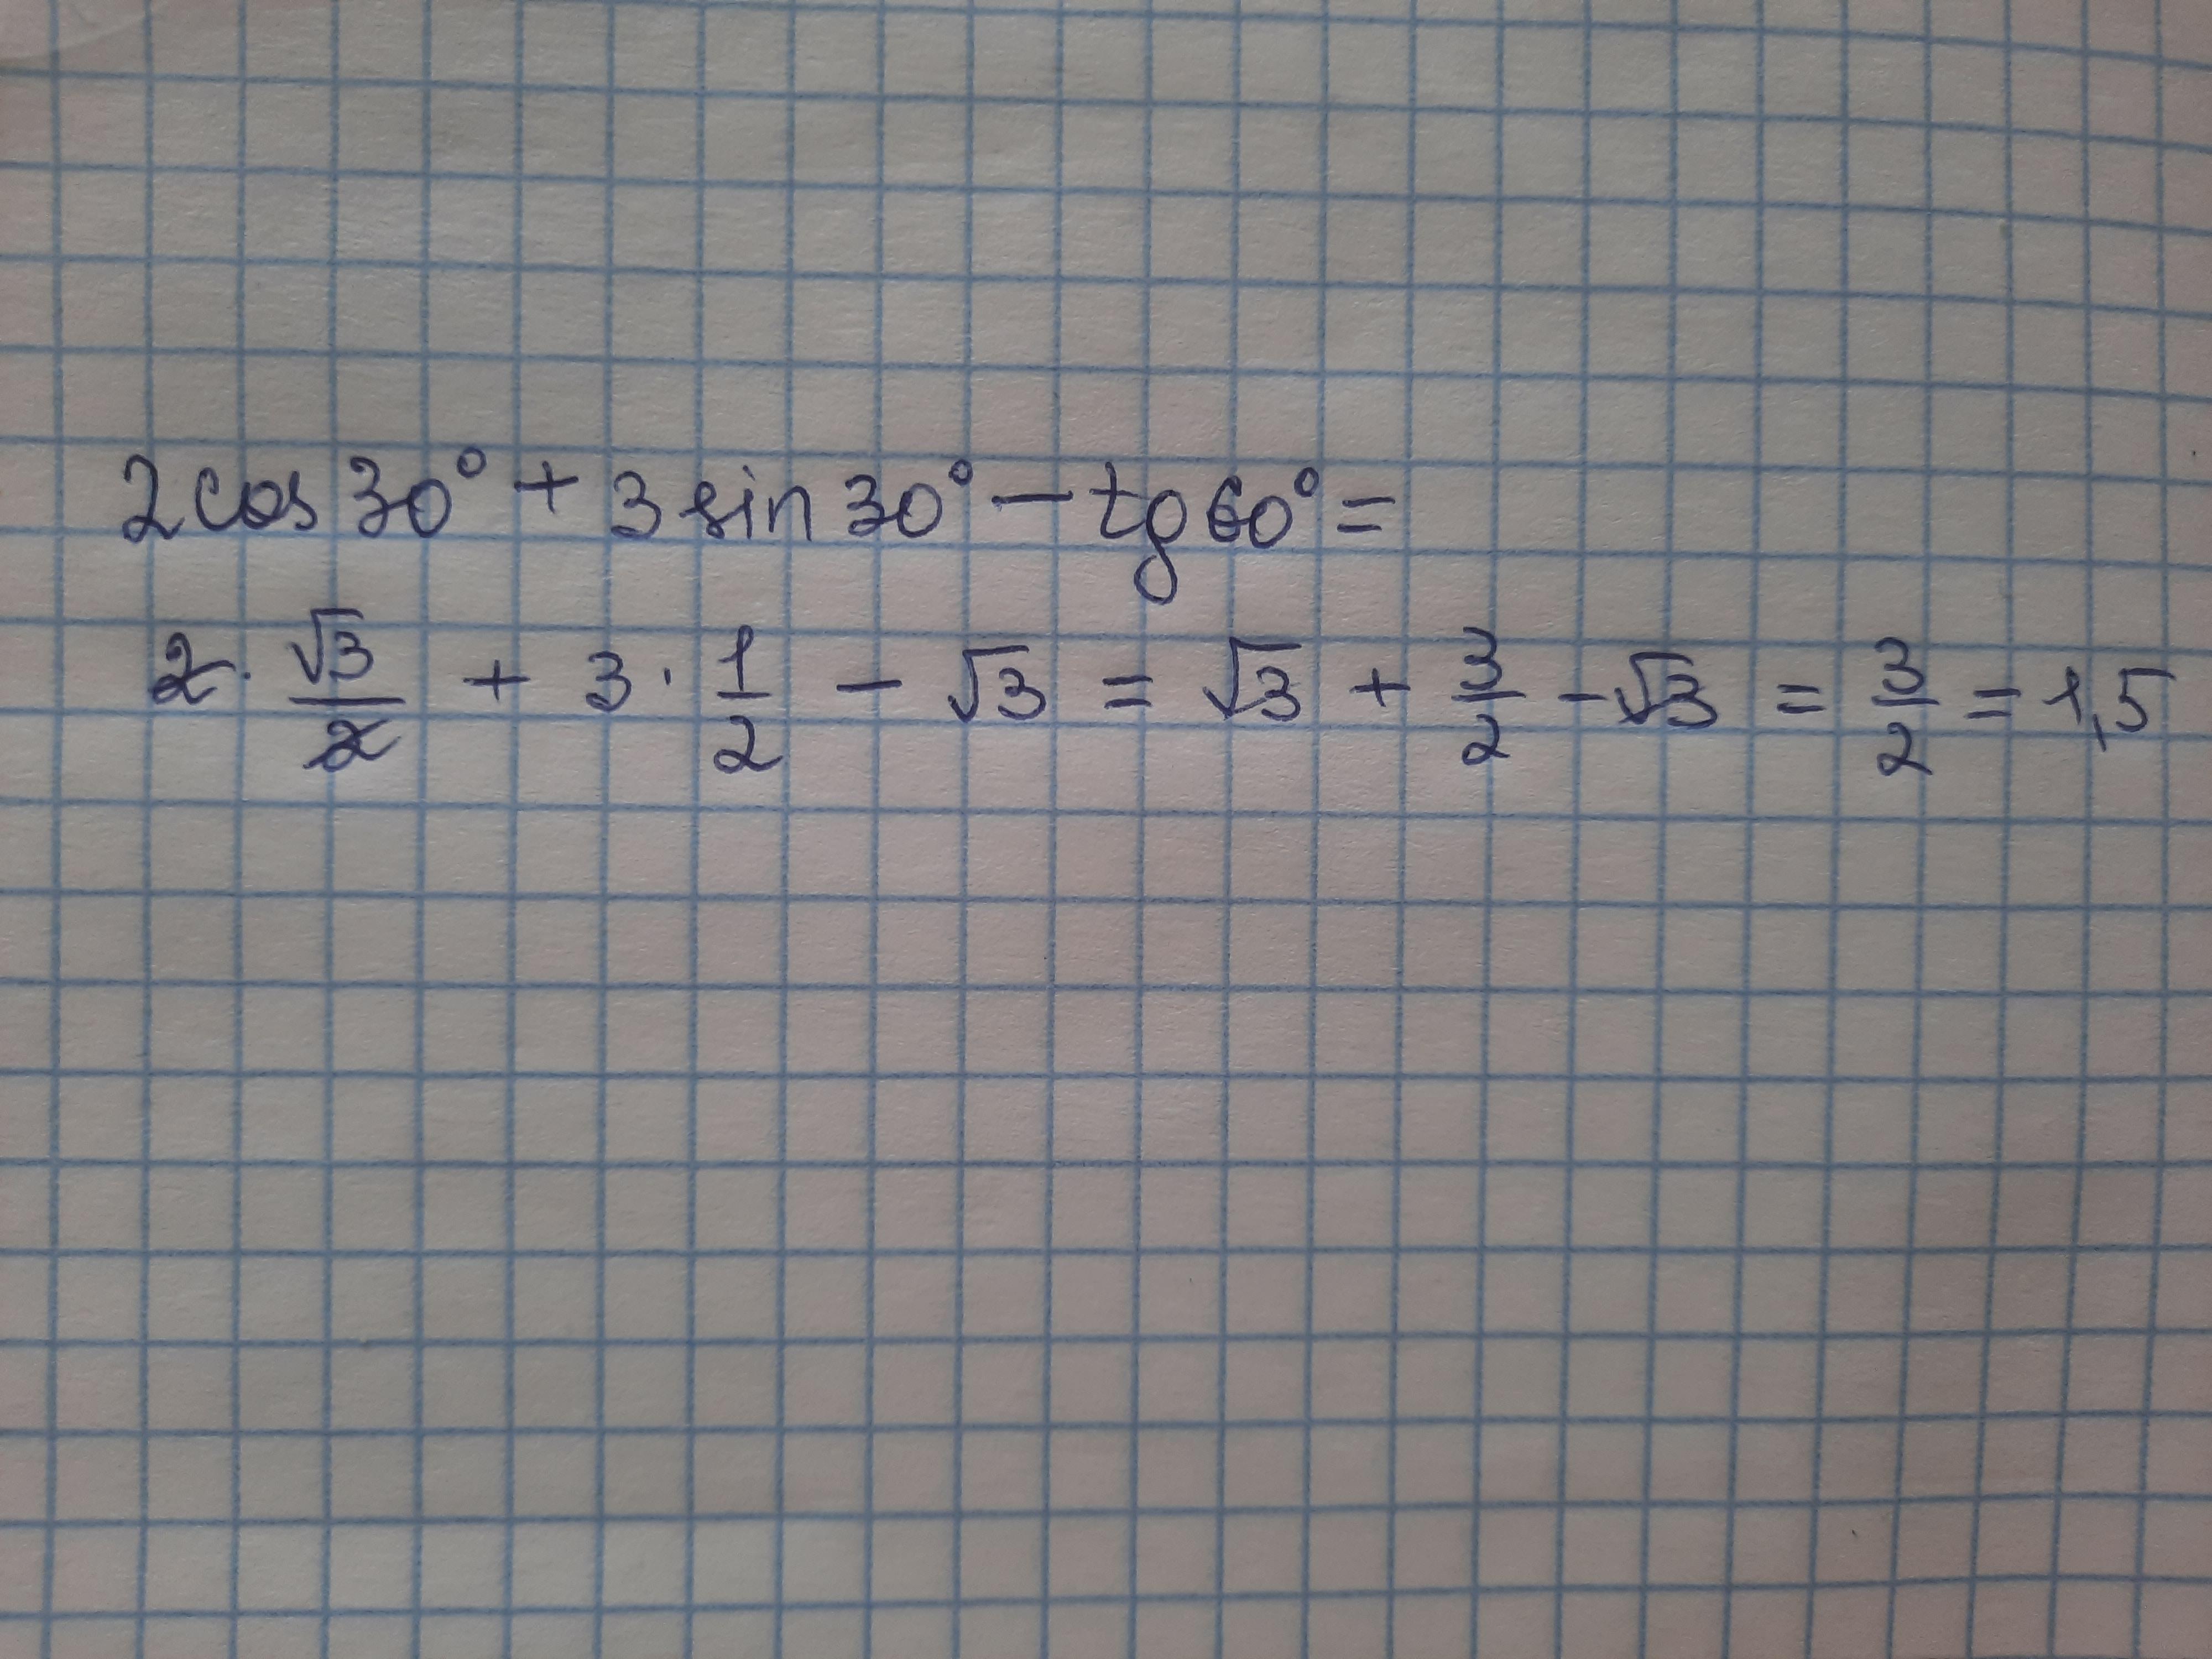 2cos30° + 3sin30° – tg60° =
2 · √3/2 + 3 · 1/2 – √3 = √3 + 3/2 – √3 = 3/2 = 1,5